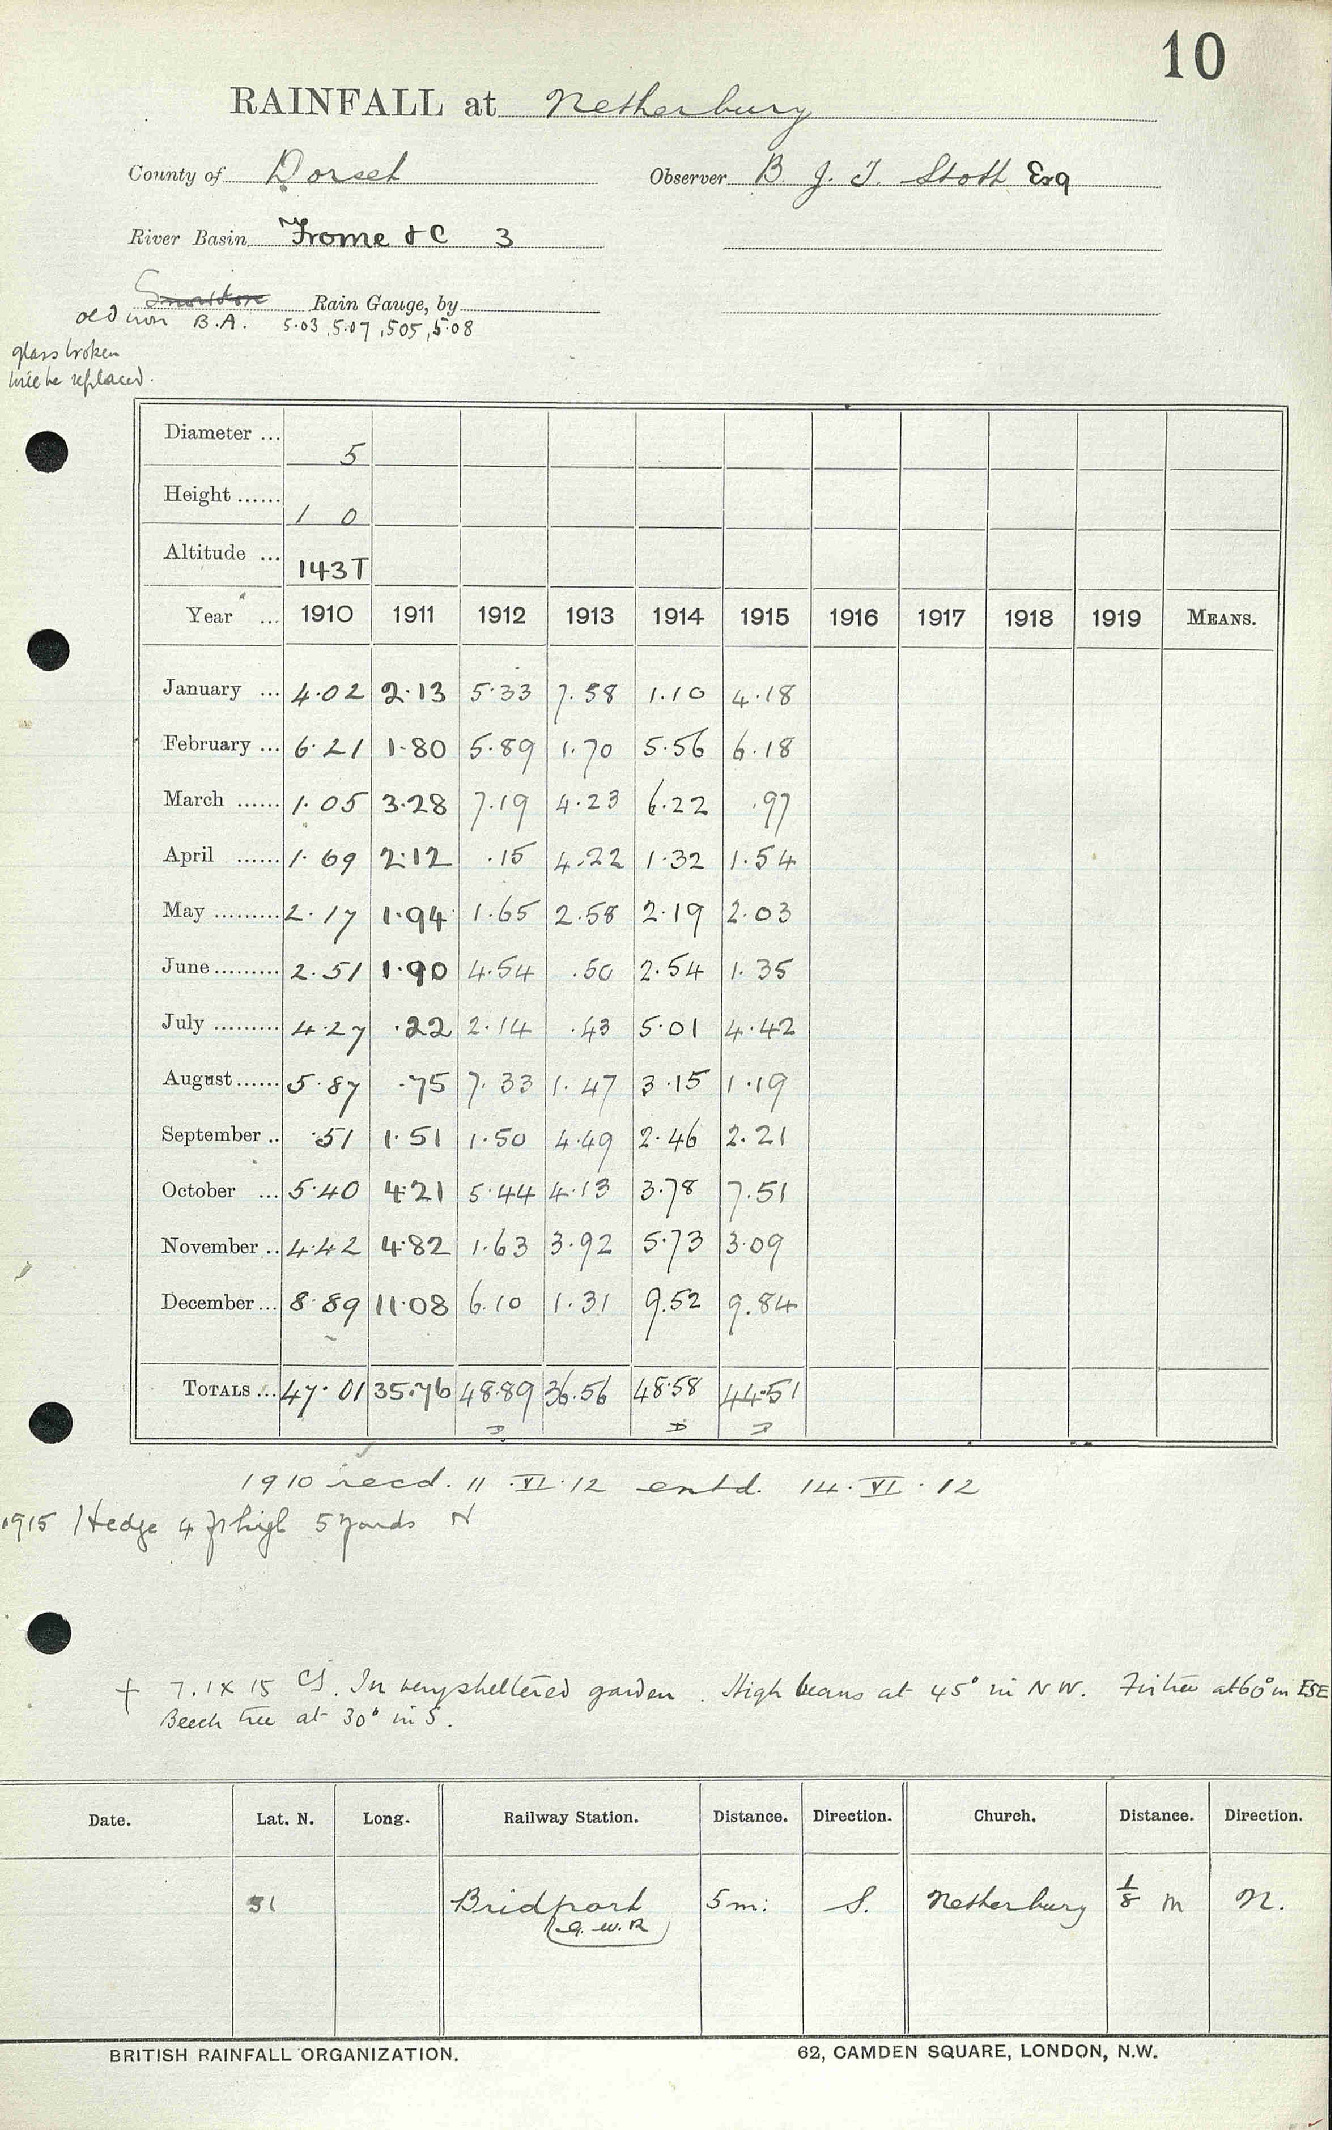 10
RAINFALL at Netherbury
County of Dorset Observer B. J. T. Stott Esq
River Basin Frome &C 3
Snowdon Rain Gauge, by
old iron B.A. 5.03, 5.07, 505, 5.08
glass broken
will be replaced.
Diameter ... 5
Height ...... 1 0
Altitude ... 143T
Year ... 1910 1911 1912 1913 1914 1915 1916 1917 1918 1919 MEANS.
January ... 4.02 2.13 5.33 7.58 1.10 4.18
February ... 6.21 1.80 5.89 1.70 5.56 6.18
March ...... 1.05 3.28 7.19 4.23 6.22 .97
April ...... 1.69 2.12 .15 4.22 1.32 1.54
May ......... 2.17 1.94 1.65 2.58 2.19 2.03
June ......... 2.51 1.90 4.54 .50 2.54 1.35
July ......... 4.27 .22 2.14 .43 5.01 4.42
August ...... 5.87 .75 7.33 1.47 3.15 1.19
September .. .51 1.51 1.50 4.49 2.46 2.21
October ... 5.40 4.21 5.44 4.13 3.78 7.51
November .. 4.42 4.82 1.63 3.92 5.73 3.09
December ... 8.89 11.08 6.10 1.31 9.52 9.84
TOTALS ... 47.01 35.76 48.89 36.56 48.58 44.51
1910 recd. 11.VI.12 entd. 14.VI.12
1915 Hedge 4 ft high 5 yards N
† 7.1X 15 CS. In very sheltered garden. High beans at 45° in NW. Fir tree at 60° in ESE
Beech tree at 30° in S.
Date. Lat. N. Long. Railway Station. Distance. Direction. Church. Distance. Direction.
51 Bridport 5m: S. Netherbury 1/8 m N.
(G.W.R)
BRITISH RAINFALL ORGANIZATION. 62, CAMDEN SQUARE, LONDON, N.W.